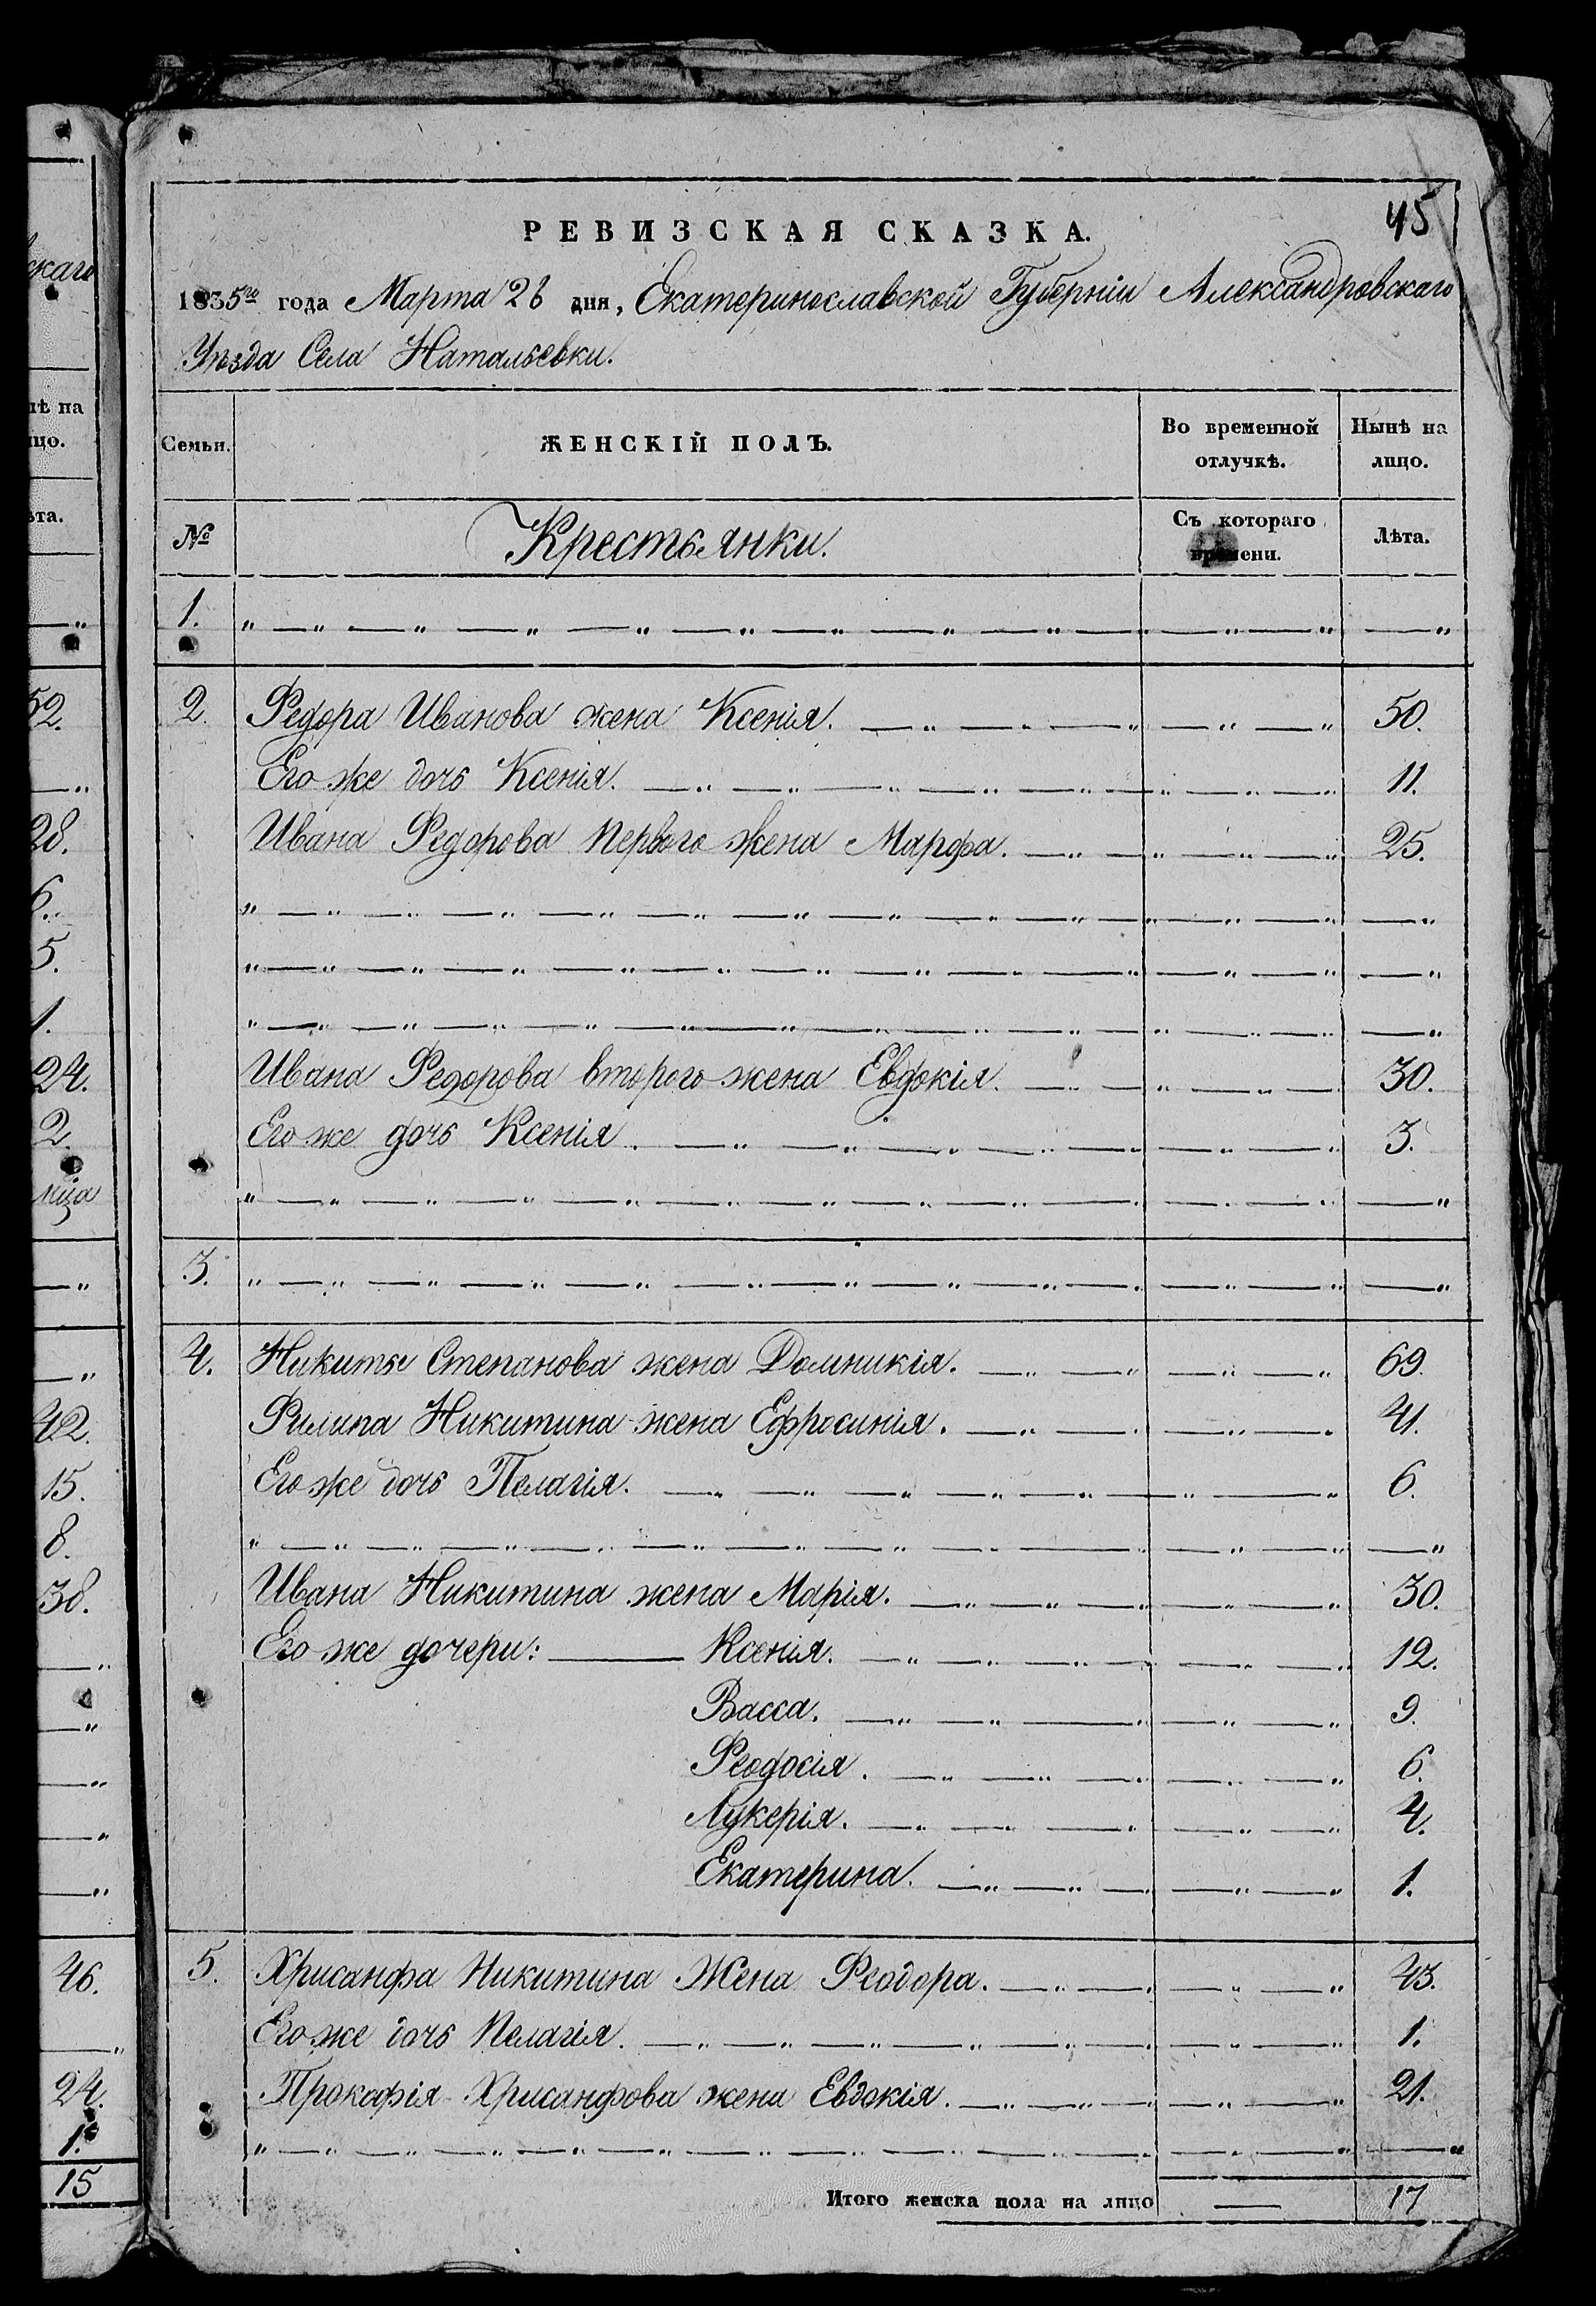 45
РЕВИЗСКАЯ СКАЗКА.
1835го года Марта 28 дня, Екатеринославской Губернiи Александровскаго
Уѣзда Села Натальевки.
Семьи. ЖЕНСКIЙ ПОЛЪ. Во временной отлучкѣ. Нынѣ на лицо.
№ Крестьянки. Съ котораго времени. Лѣта.
1. „ — „ — „ — „
2. Федора Иванова жена Ксенiя. — „ — „ 50.
Его же дочь Ксенiя. — „ — „ 11.
Ивана Федорова первого жена Марфа. — „ — „ 25.
„ — „ — „ — „
„ — „ — „ — „
„ — „ — „ — „
Ивана Федорова второго жена Евдокiя. — „ — „ 30.
Его же дочь Ксенiя. — „ — „ 3.
„ — „ — „ — „
3. „ — „ — „ — „
4. Никиты Степанова жена Домникiя. — „ — „ 69.
Филипа Никитина жена Ефросинiя. — „ — „ 41.
Его же дочь Пелагiя. — „ — „ 6.
„ — „ — „ — „
Ивана Никитина жена Марiя. — „ — „ 30.
Его же дочери: — Ксенiя. — „ — „ 12.
Васса. — „ — „ 9.
Феодосiя. — „ — „ 6.
Лукерiя. — „ — „ 4.
Екатерина. — „ — „ 1.
5. Хрисанфа Никитина Жена Феодора. — „ — „ 43.
Его же дочь Пелагiя. — „ — „ 1.
Прокофiя Хрисанфова жена Евдокiя. — „ — „ 21.
„ — „ — „ — „
Итого женска пола на лицо — 17
скаго
нѣ на
цо.
ѣта.
— „
52.
— „
28.
6.
5.
1.
24.
2.
— „
— „
42.
15.
8.
38.
— „
— „
— „
— „
— „
46.
— „
24.
1.
15